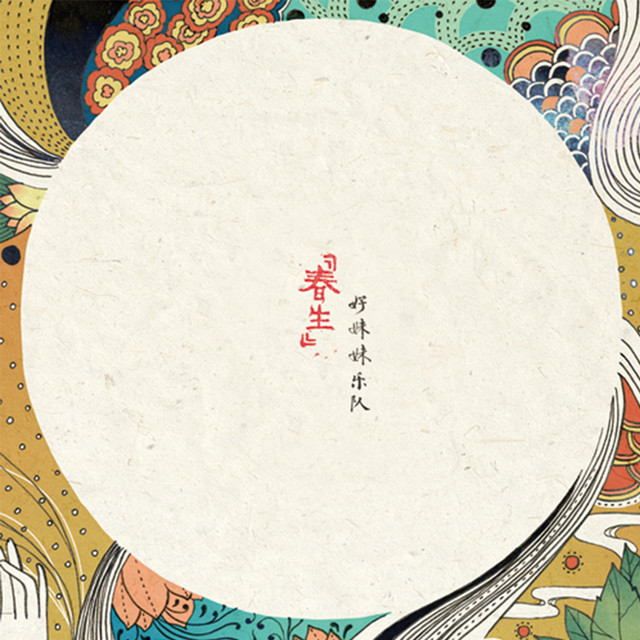 「春生」
好妹妹乐队